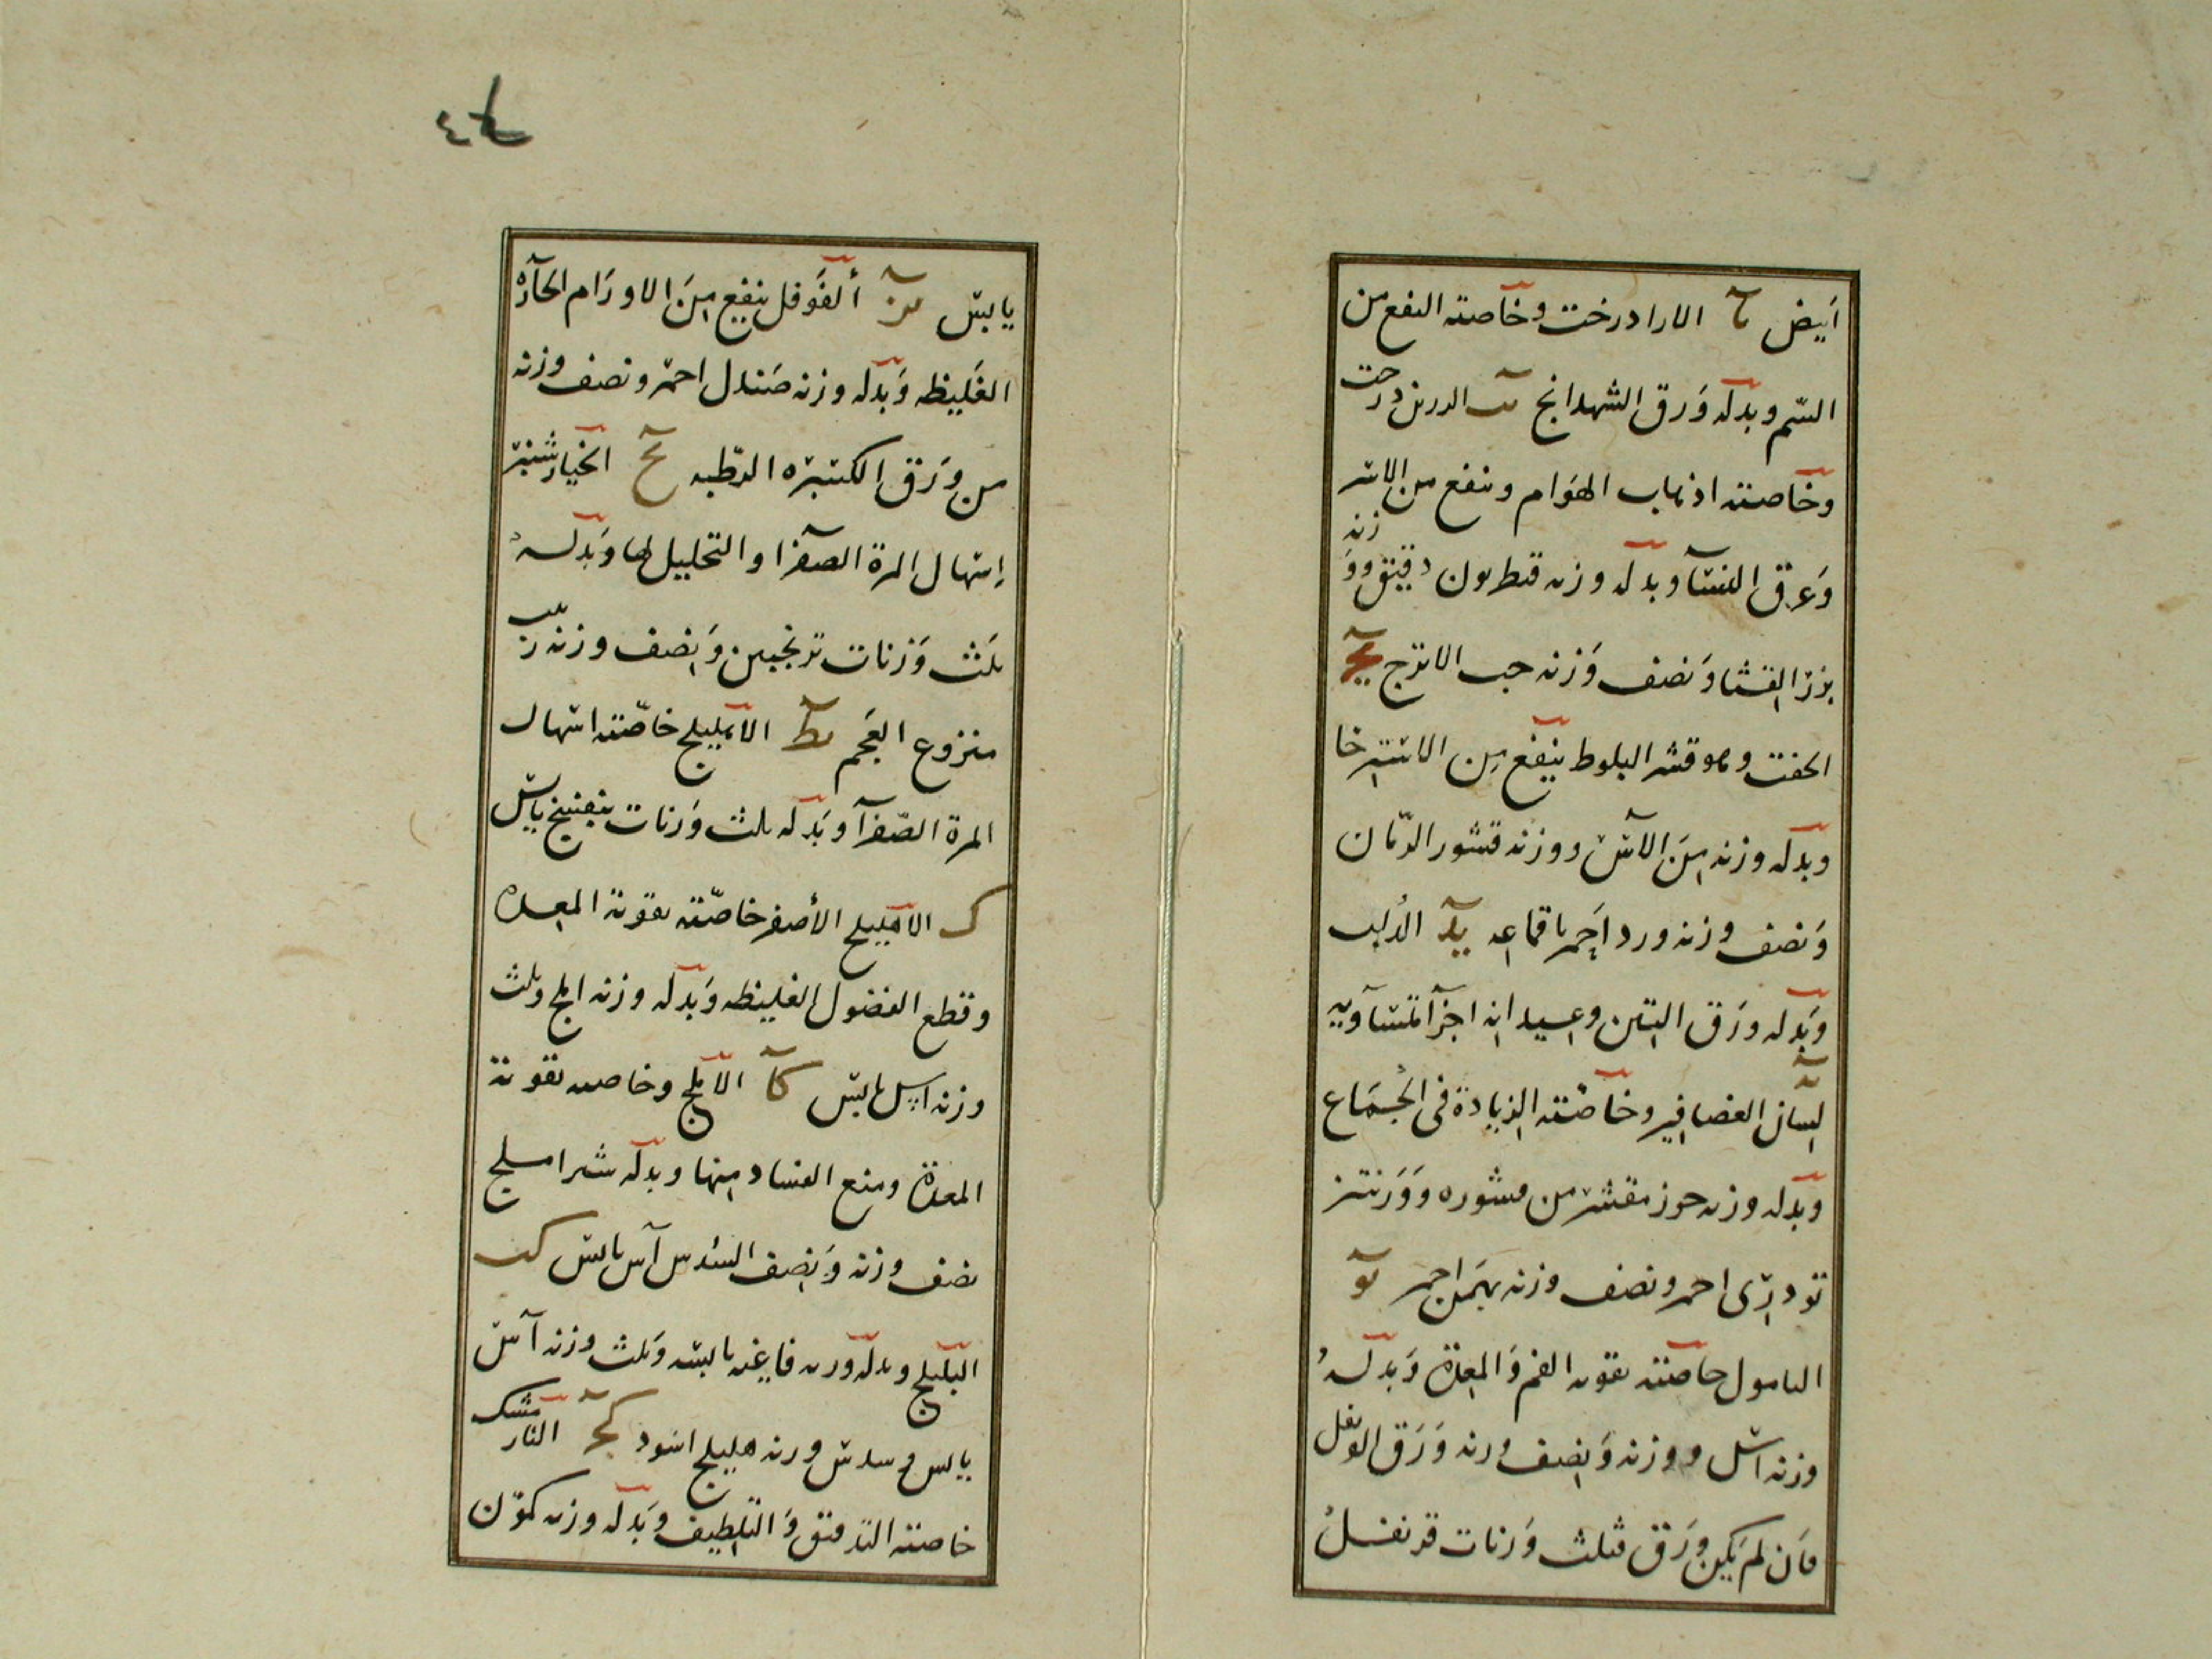 ابيض يا الازادرخت وخاصته النفع من
السم وبدله ورق الشهدانج يب الدرىى درخت
وخاصته اذهاب الهوام وينفع من الاسر
وعرق النسآ وبدله وزنه قنطريون دقيق ووزنه
بزر القثا ونصف وزنه حب الاترج يج
الجفت وهو قشر البلوط ينفع من الاسترخا
وبدله وزنه من الآس ووزنه قشور الرمان
ونصف وزنه ورد احمر باقماعه يد الدلب
وبدله ورق التين وعيدانه اجزآ متساويه
يه لسان العصافير وخاصته الزيادة فى الجماع
وبدله وزنه جوز مقشر من قشوره ووزنتر
تودرى احمر ونصف وزنه بهمن احمر يو
التامول خاصته تقوية الفم والمعدة وبدله
وزنه اشل ووزنه ونصف وزنه ورق القرنفل
فان لم يكن ورق فثلث وزنات قرنفل
يابس يز الفوفل ينفع من الاورام الحآرة
الغليظه وبدله وزنه صندل احمر ونصف وزنه
من ورق الكسبره الرطبه يح الخيارشنبر
إسهال المرة الصفرا والتحليل لها وبدله
ثلث وزنات ترنجبين ونصف وزنه زبيب
منزوع العجم يط الاهليلج خاصته اسهال
المرة الصفرآ وبدله ثلث وزنات بنفسج يابس
ك الاهليلج الأصفر خاصته تقوية المعدة
وقطع الفضول الغليظه وبدله وزنه املج وثلث
وزنه اس يابس كا الاملج وخاصته تقوية
المعدة ومنع الفساد منها وبدله شيراملج
نصف وزنه ونصف السدس آس يابس كب
البليلج وبدله وزنه فاغيه يابسه وثلث وزنه آس
يابس وسدس وزنه هليلج اسود كج النارمشك
خاصته الترقيق والتلطيف وبدله وزنه كمون